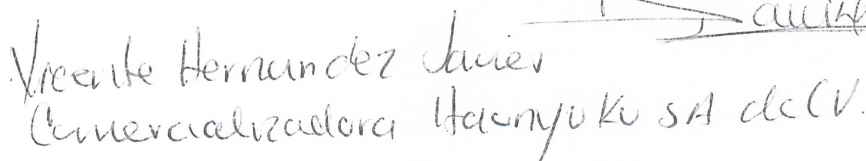 Vicente Hernandez Javier
Comercializadora Haonyuku SA de CV.